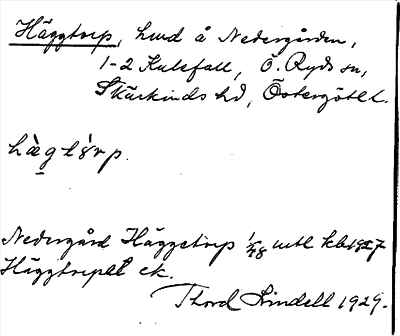 Häggtorp, hmd å Nedergården,
1-2 Kulefall, Ö. Ryds sn,
Skärkinds hd, Östergötl l.
hæ̀gtórp.
Nedergård Häggetorp 1/48 mtl kb 1927
Häggtorpet ek.
Thord Lindell 1929.